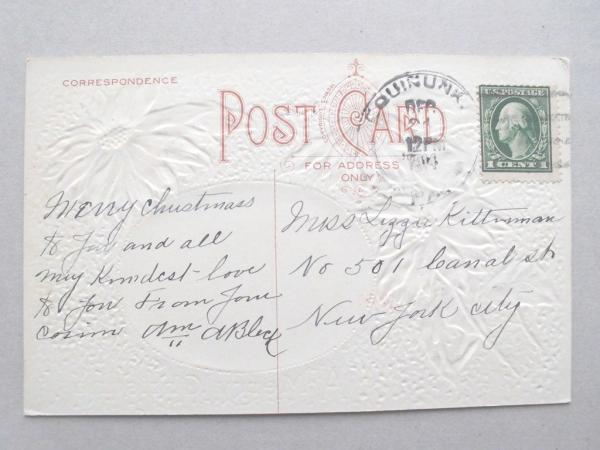 CORRESPONDENCE
POST CARD
FOR ADDRESS
ONLY
EQUINUNK,
12PM
PA.
U.S. POSTAGE
1 CENT 1
Merry Christmass
to you and all
my Kindest love
to you From your
Miss Lizzie
No 501 Canal st
New York City